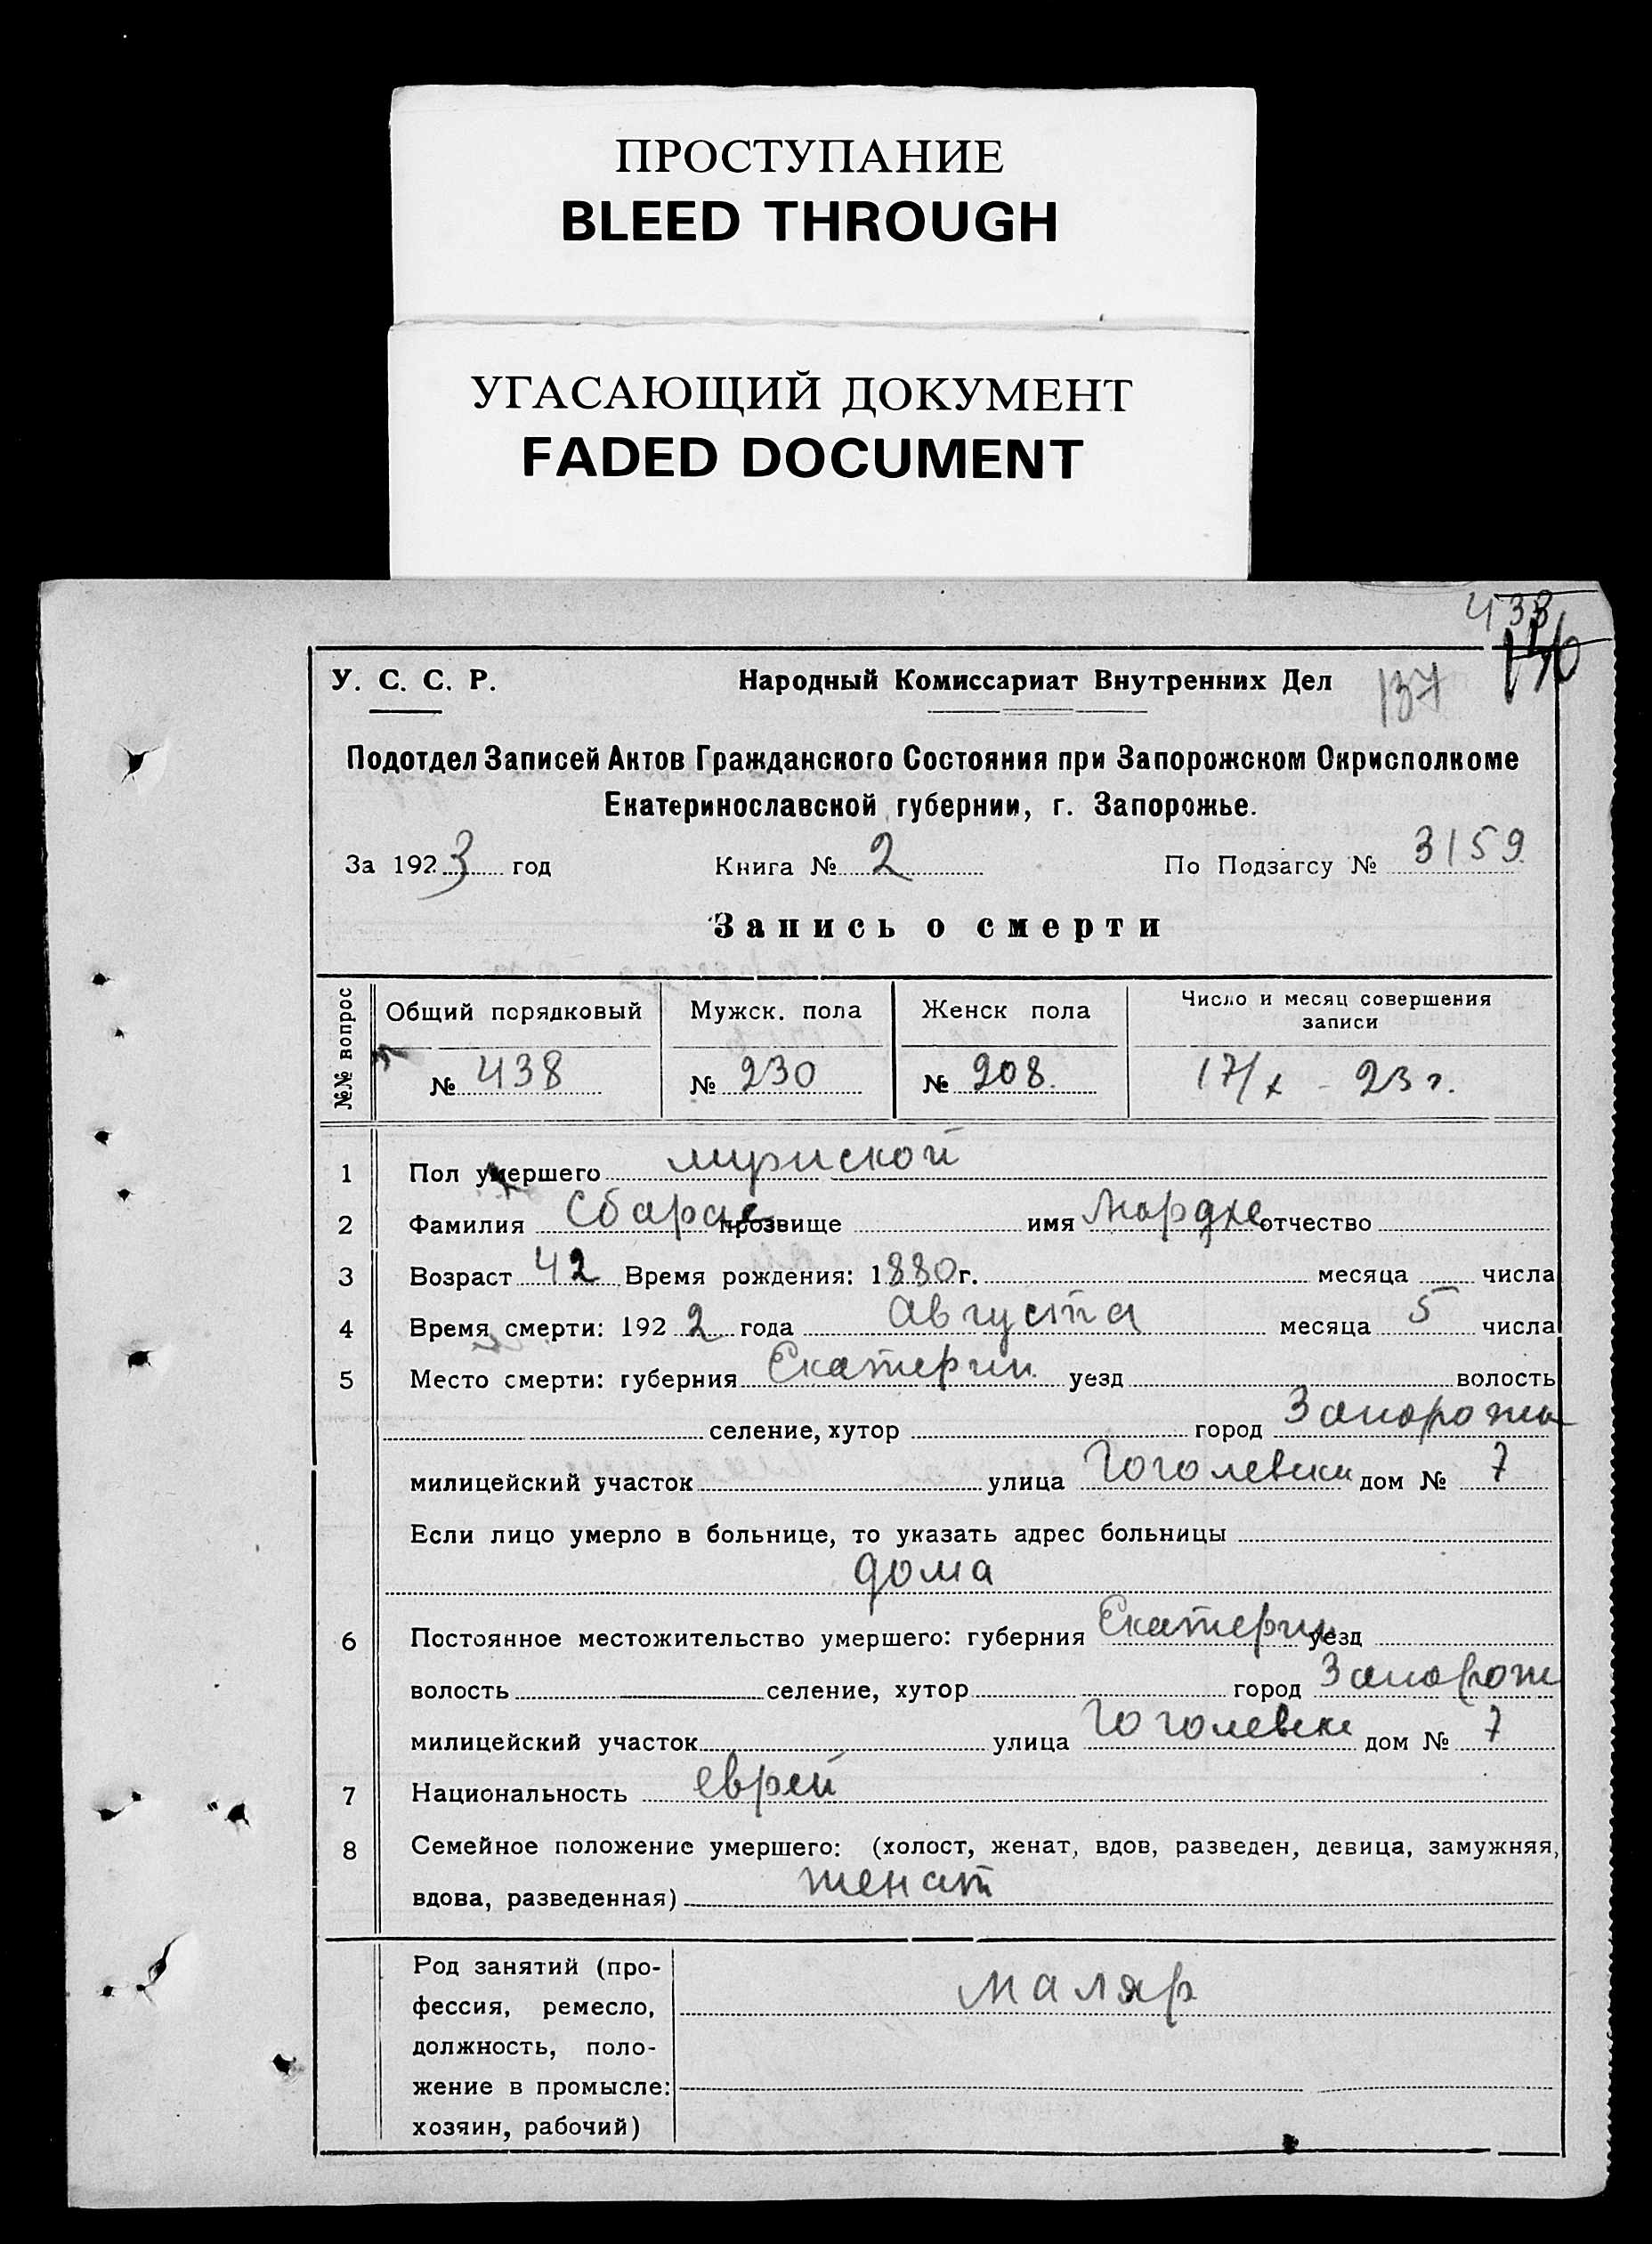 ПРОСТУПАНИЕ
BLEED THROUGH
УГАСАЮЩИЙ ДОКУМЕНТ
FADED DOCUMENT
438
У. С. С. Р.
Народный Комиссариат Внутренних Дел 137
Подотдел Записей Актов Гражданского Состояния при Запорожском Окрисполкоме
Екатеринославской губернии, г. Запорожье.
За 1923 год Книга № 2 По Подзагсу № 3159
Запись о смерти
№№ вопрос
Общий порядковый Мужск. пола Женск пола Число и месяц совершения
записи
№ 438 № 230 № 208. 17/x - 23 г.
1 Пол умершего мужской
2 Фамилия Сбарас прозвище имя Мордхе отчество
3 Возраст 42 Время рождения: 1880г. месяца числа
4 Время смерти: 1922 года Августа месяца 5 числа
5 Место смерти: губерния Екатерин уезд волость
селение, хутор город Запорожья
милицейский участок улица Гоголевски дом № 7
Если лицо умерло в больнице, то указать адрес больницы
дома
6 Постоянное местожительство умершего: губерния Екатерин уезд
волость селение, хутор город Запорож
милицейский участок улица Гоголевск дом № 7
7 Национальность еврей
8 Семейное положение умершего: (холост, женат, вдов, разведен, девица, замужняя,
вдова, разведенная) женат
Род занятий (про-
фессия, ремесло, маляр
должность, поло-
жение в промысле:
хозяин, рабочий)